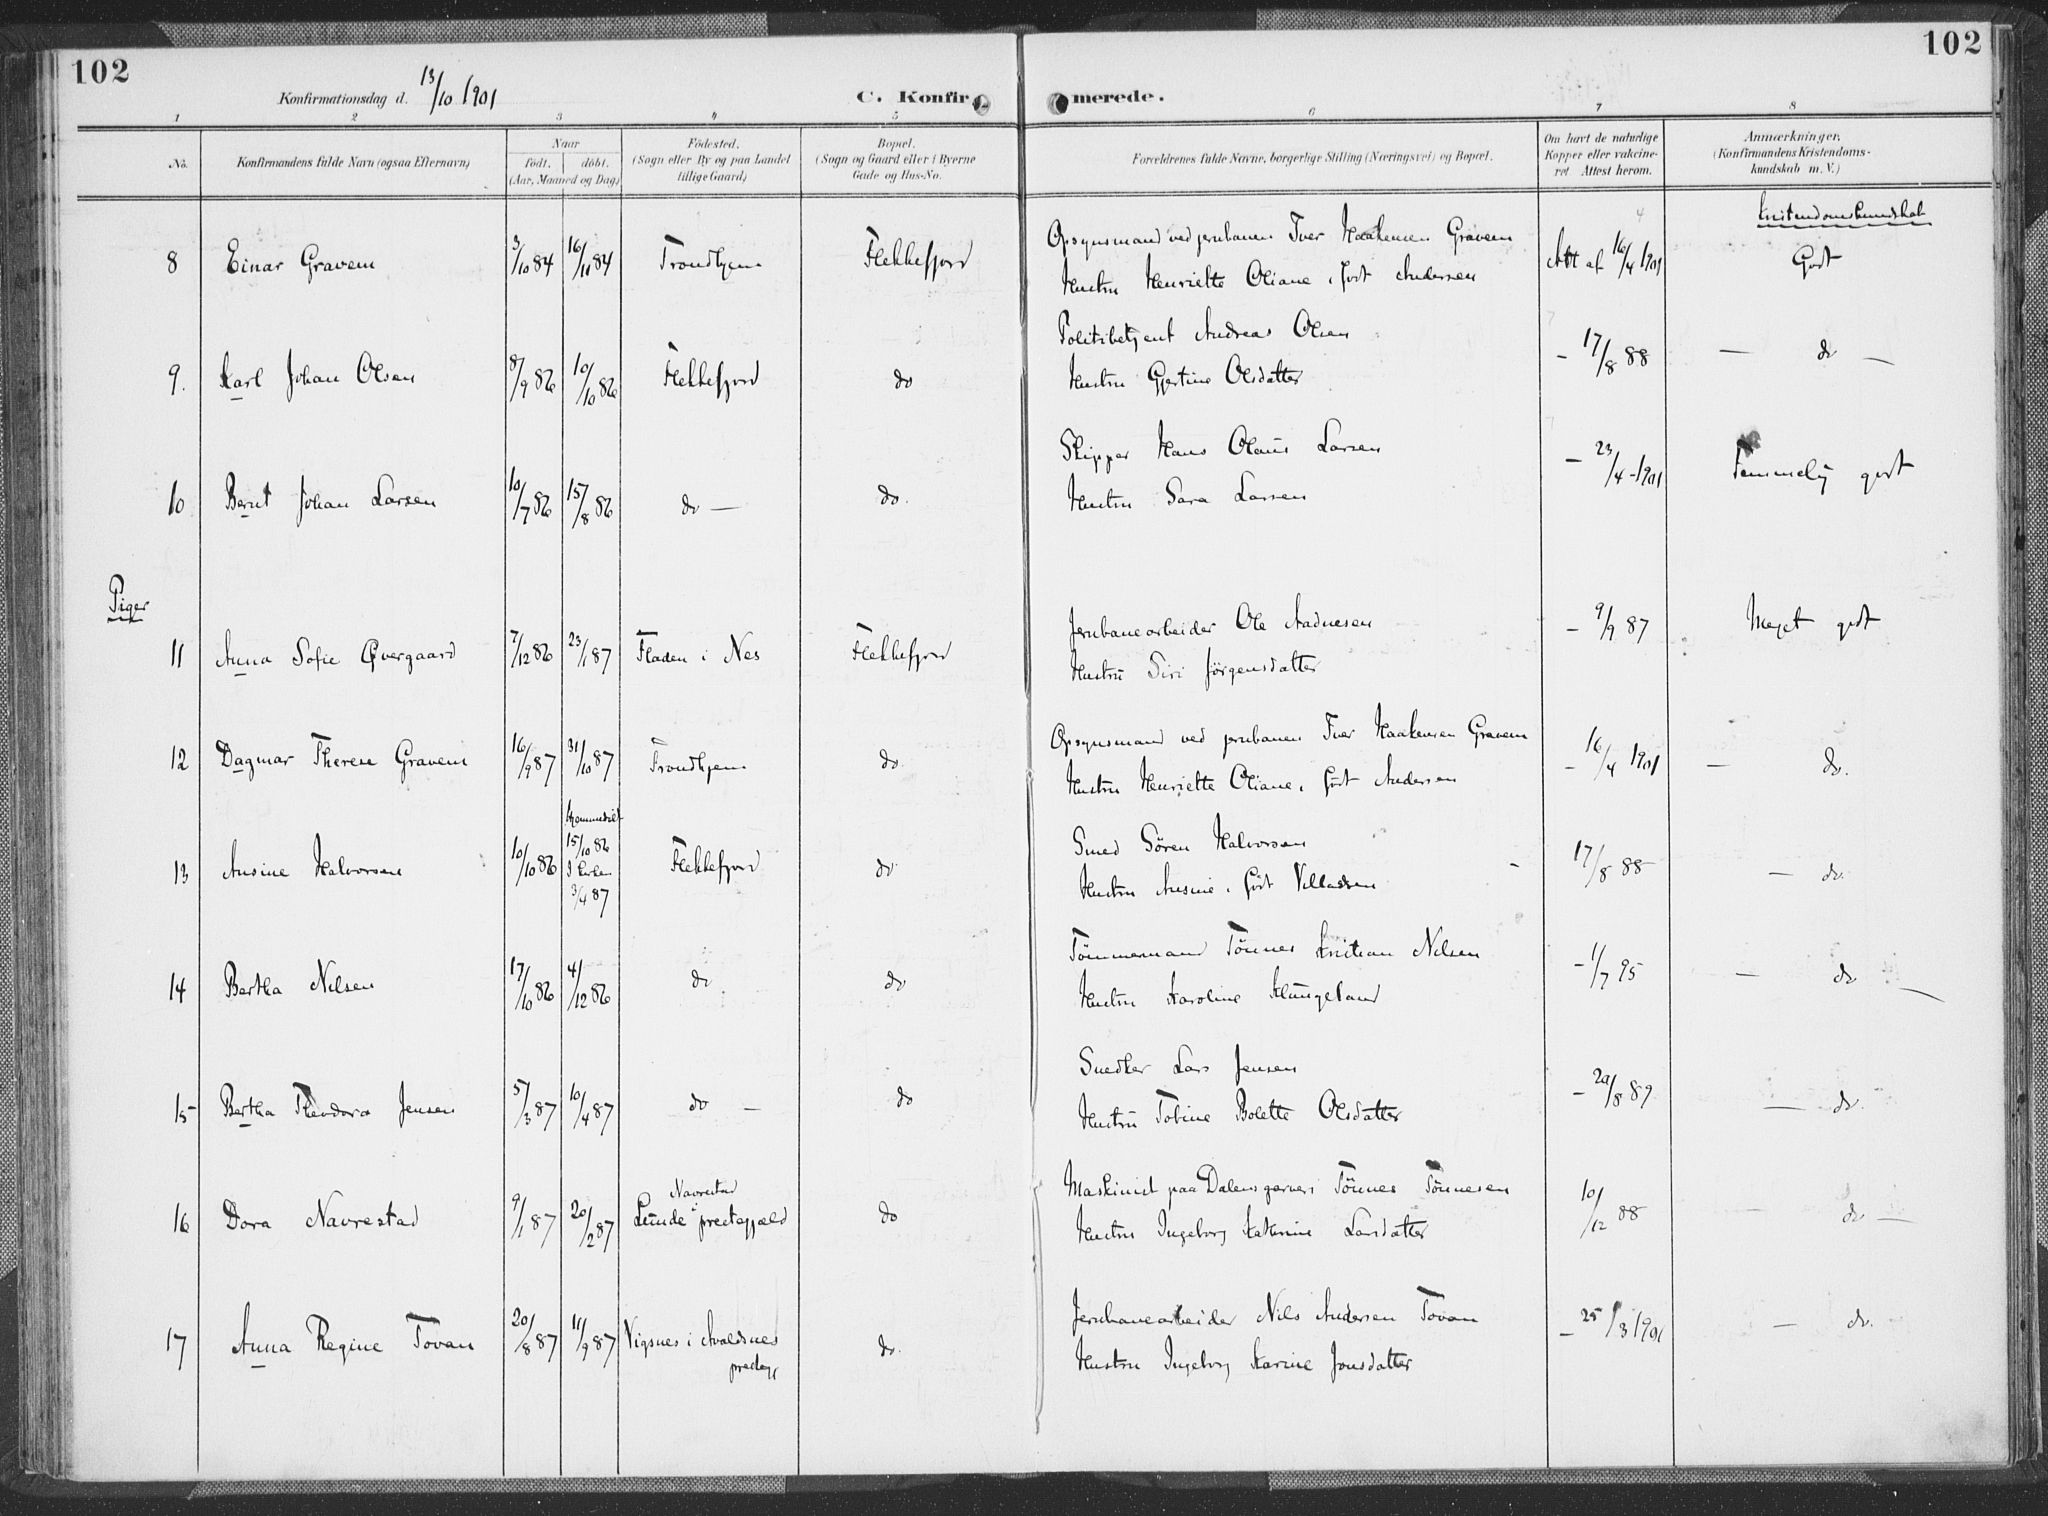 102
102
Konfirmationsdag d. 13/10 1901
C. Konfirmerede.
1 2 3 4 5 6 7 8
No.
Konfirmandens fulde Navn (ogsaa Efternavn)
Naar
födt. döbt.
(Aar, Maaned og Dag)
Födested.
(Sogn eller By og paa Landet
tillige Gaard)
Bopæl.
(Sogn og Gaard eller i Byerne
Gade og Hus-No.
Forældrenes fulde Navne, borgerlige Stilling (Næringsvei) og Bopæl.
Om havt de naturlige
Kopper eller vakcine-
ret Attest herom.
Anmærkninger.
(Konfirmandens Kristendoms-
kundskab m. V.)
Kristendomskundskab
8 Einar Gravem 3/10 84 16/11 84 Trondhjem Flekkefjord Opsynsmand ved jernbanen Iver Haakensen Gravem Att af 16/4 1901 Godt
Hustru Henriette Oliane, født Andersen
9. Karl Johan Olsen 8/9 86 10/10 86 Flekkefjord do Politibetjent Andreas Olsen – 17/8 88 — do —
Hustru Gjertine Olsdatter
10 Bernt Johan Larsen 10/7 86 15/8 86 do — do. Skipper Hans Olaus Larsen – 23/4 - 1901 Temmelig godt
Hustru Sara Larsen
Piger
11 Anna Sofie Øvergaard 7/12 86 23/1 87 Fladen i Nes Flekkefjord Jernbanearbeider Ole Aadnesen – 9/9 87 Meget godt
Hustru Siri Jörgensdatter
12 Dagmar Therese Gravem 16/9 87 31/10 87 Trondhjem do. Opsynsmand ved jernbanen Iver Haakensen Gravem – 16/4 1901 — do.
Hustru Henriette Oliane, født Andersen
13 Ansine Halvorsen 10/10 86 Hjemmedöbt 15/10 86 I kirken 3/4 87 Flekkefjord do Smed Sören Halvorsen – 17/8 88 — do.
Hustru Ansine, født Villadsen
14 Bertha Nilsen 17/10 86 4/12 86 do do Tömmermand Tönnes Kristian Nilsen – 1/7 95 — do —
Hustru Karoline Klungeland
15 Bertha Theodora Jensen 5/3 87 10/4 87 do — do Snedker Lars Jensen – 20/8 89 — do.
Hustru Tobine Bolette Olsdatter
16 Dora Navrestad 9/1 87 20/2 87 Navrestad i Lunde prestegjæld do Maskinist paa Dalens garveri Tönnes Tönnesen 10/12 88 — do —
Hustru Ingeborg Katherine Larsdatter
17 Anna Regine Tovan 20/8 87 11/9 87 Vigsnes i Avaldsnes prestegj do. Jernbanearbeider Nils Andersen Tovan – 25/3 1901 — do.
Hustru Ingeborg Karine Jonsdatter